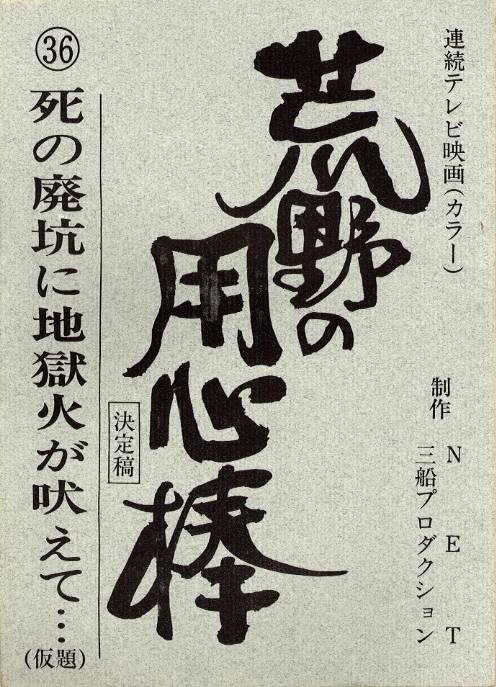 連続テレビ映画(カラー)
荒野の
用心棒
制作 NET
三船プロダクション
決定稿
㊱ 死の廃坑に地獄火が吠えて…
(仮題)